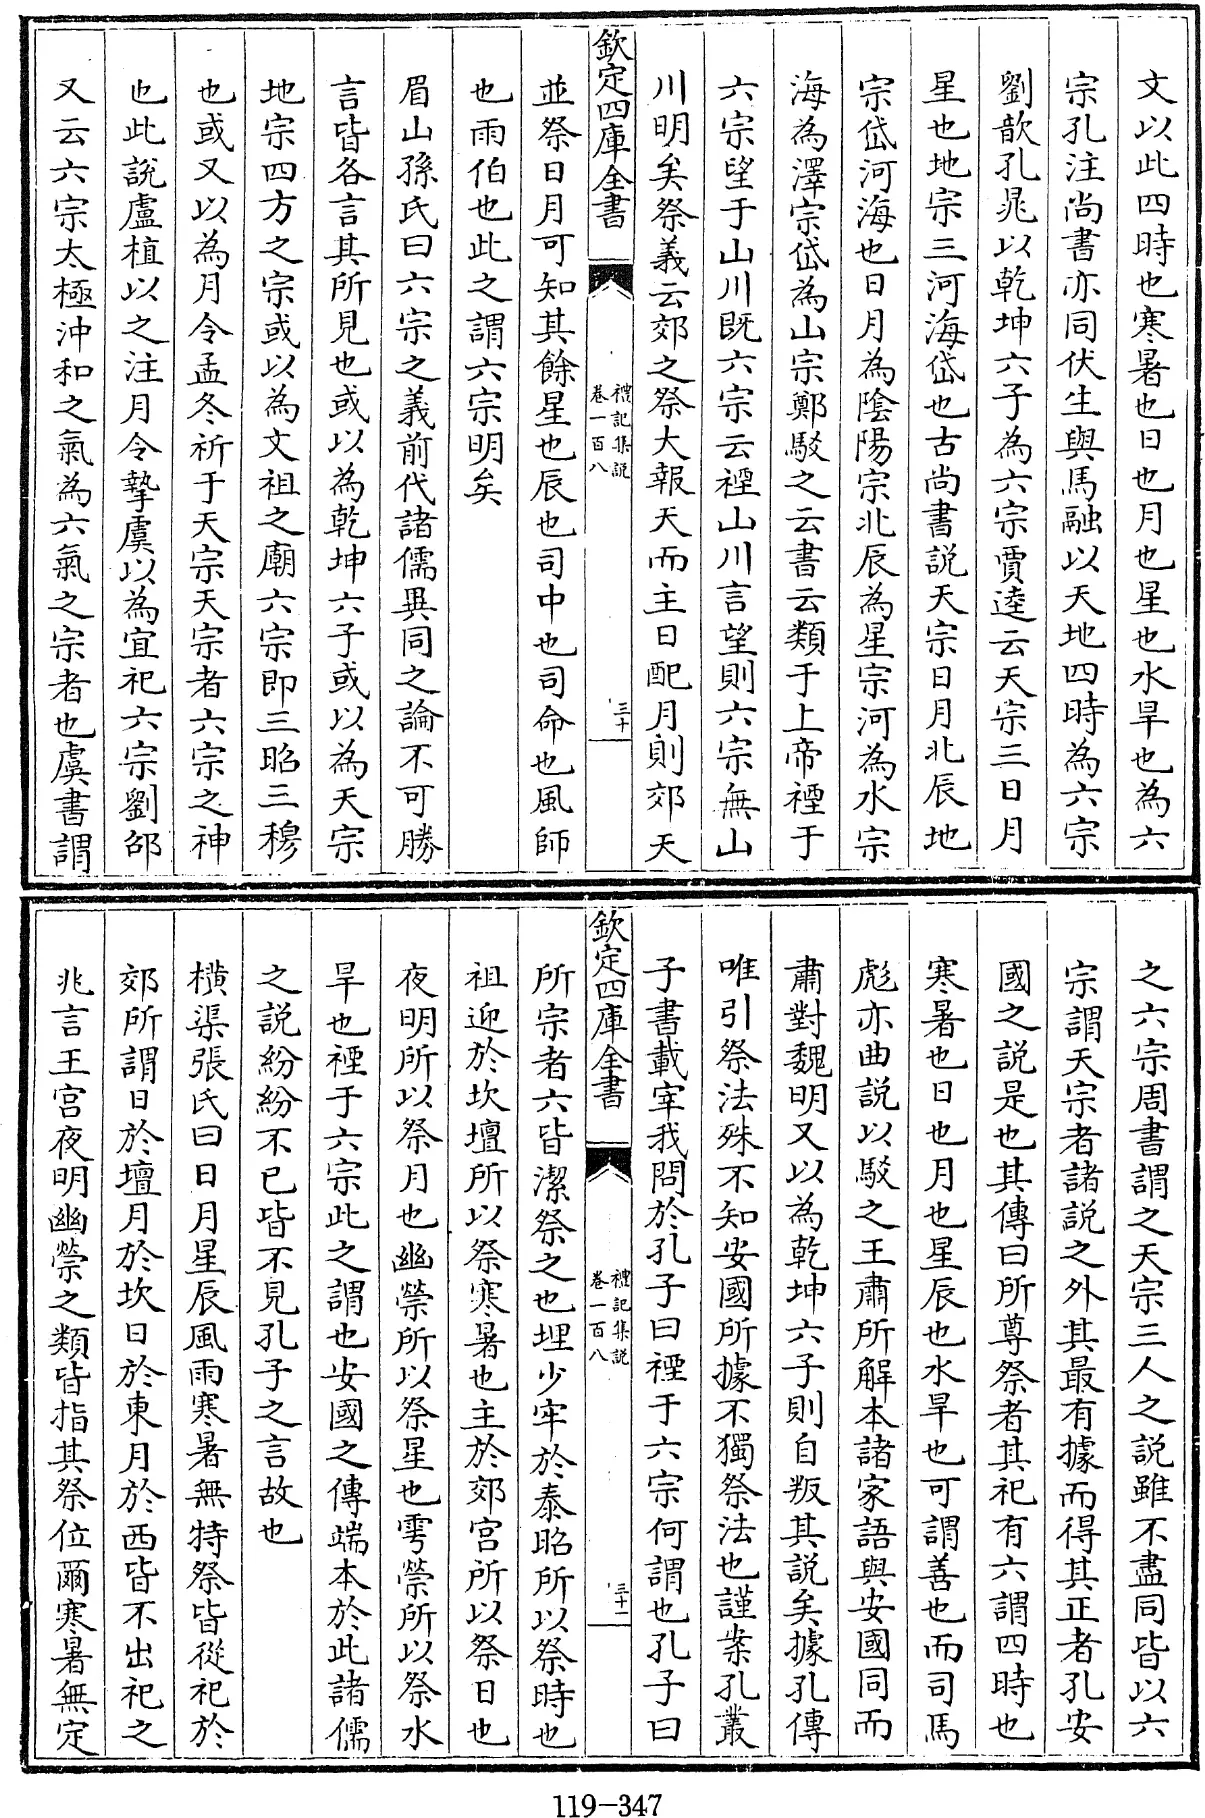 文以此四時也寒暑也日也月也星也水旱也為六
宗孔注尚書亦同伏生與馬融以天地四時為六宗
劉歆孔晁以乾坤六子為六宗賈逵云天宗三日月
星也地宗三河海岱也古尚書説天宗日月北辰地
宗岱河海也日月為陰陽宗北辰為星宗河為水宗
海為澤宗岱為山宗鄭駁之云書云類于上帝禋于
六宗望于山川既六宗云禋山川言望則六宗無山
川明矣祭義云郊之祭大報天而主日配月則郊天
欽定四庫全書
禮記集説
卷一百八
三十
並祭日月可知其餘星也辰也司中也司命也風師
也雨伯也此之謂六宗明矣
眉山孫氏曰六宗之義前代諸儒異同之論不可勝
言皆各言其所見也或以為乾坤六子或以為天宗
地宗四方之宗或以為文祖之廟六宗即三昭三穆
也或又以為月令孟冬祈于天宗天宗者六宗之神
也此説盧植以之注月令摯虞以為宜祀六宗劉邵
又云六宗太極沖和之氣為六氣之宗者也虞書謂
之六宗周書謂之天宗三人之説雖不盡同皆以六
宗謂天宗者諸説之外其最有據而得其正者孔安
國之説是也其傳曰所尊祭者其祀有六謂四時也
寒暑也日也月也星辰也水旱也可謂善也而司馬
彪亦曲説以駁之王肅所解本諸家語與安國同而
肅對魏明又以為乾坤六子則自叛其説矣據孔傳
唯引祭法殊不知安國所據不獨祭法也謹案孔叢
子書載宰我問於孔子曰禋于六宗何謂也孔子曰
欽定四庫全書
禮記集説
卷一百八
三十一
所宗者六皆潔祭之也埋少牢於泰昭所以祭時也
祖迎於坎壇所以祭寒暑也主於郊宮所以祭日也
夜明所以祭月也幽禜所以祭星也雩禜所以祭水
旱也禋于六宗此之謂也安國之傳端本於此諸儒
之説紛紛不已皆不見孔子之言故也
橫渠張氏曰日月星辰風雨寒暑無特祭皆從祀於
郊所謂日於壇月於坎日於東月於西皆不出祀之
兆言王宮夜明幽禜之類皆指其祭位爾寒暑無定
119-347